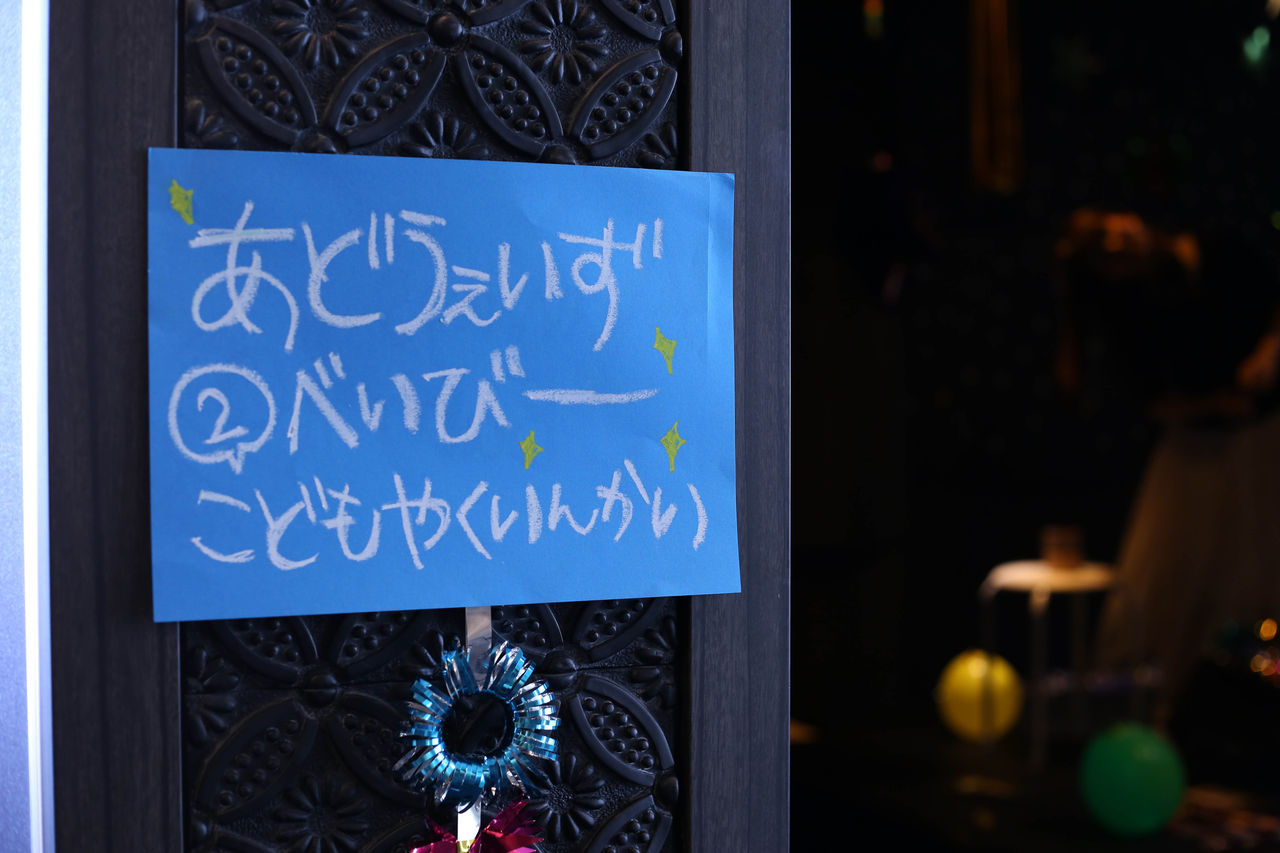 あどうぇいず
②べいびー
こどもやくいんかい